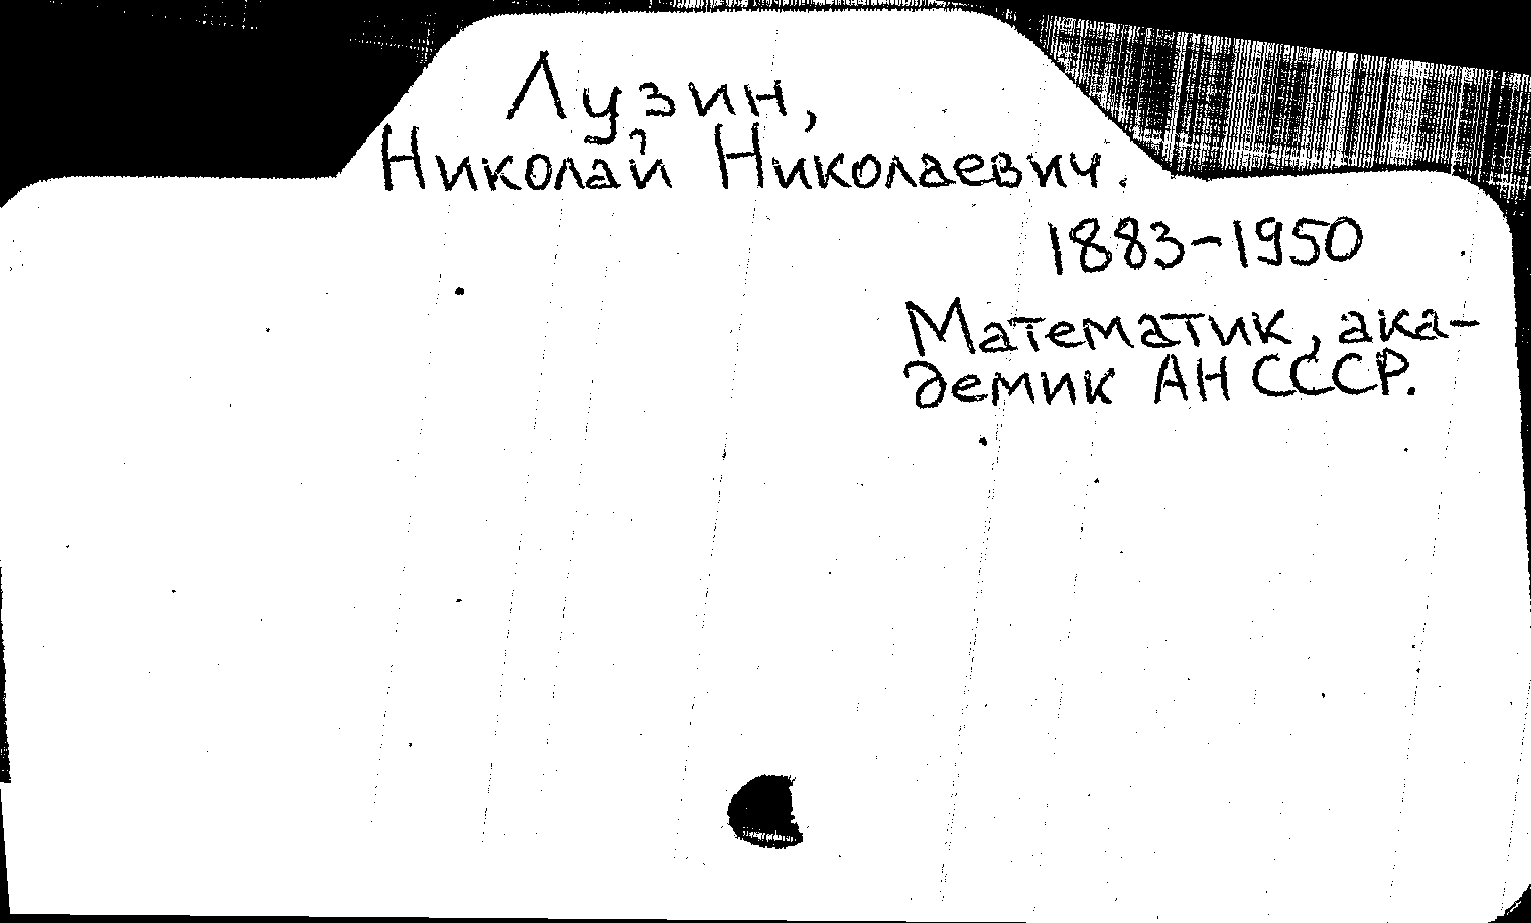 Лузин,
Николай Николаевич.
1883-1950
Математик, ака-
демик АН СССР.